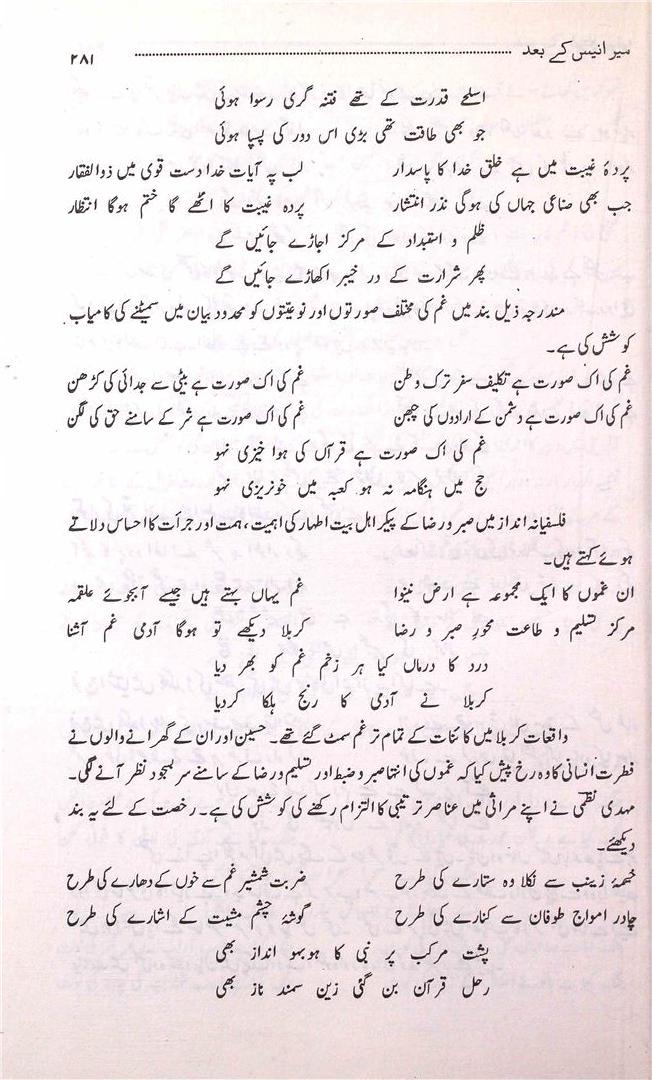 میر انیس کے بعد ........................................ ۲۸۱
اسلحے قدرت کے تھے فتنہ گری رسوا ہوئی
جو بھی طاقت تھی بڑی اس دور کی پسپا ہوئی
پردۂ غیبت میں ہے خلق خدا کا پاسدار لب پہ آیات خدا دست قوی میں ذوالفقار
جب بھی صناعی جہاں کی ہوگی نذر انتشار پردہ غیبت کا اٹھے گا ختم ہوگا انتظار
ظلم و استبداد کے مرکز اجاڑے جائیں گے
پھر شرارت کے در خیبر اکھاڑے جائیں گے
مندرجہ ذیل بند میں غم کی مختلف صورتوں اور نوعیتوں کو محدود بیان میں سمیٹنے کی کامیاب
کوشش کی ہے۔
غم کی اک صورت ہے تکلیف سفر ترک وطن غم کی اک صورت ہے بیٹی سے جدائی کی کڑھن
غم کی اک صورت ہے دشمن کے ارادوں کی چبھن غم کی اک صورت ہے شر کے سامنے حق کی لگن
غم کی اک صورت ہے قرآں کی ہوا خیزی نہو
حج میں ہنگامہ نہ ہو کعبہ میں خونریزی نہو
فلسفیانہ انداز میں صبر و رضا کے پیکر اہل بیت اطہار کی اہمیت، ہمت اور جرأت کا احساس دلاتے
ہوئے کہتے ہیں۔
ان غموں کا ایک مجموعہ ہے ارض نینوا غم یہاں بہتے ہیں جیسے آبجوئے علقمہ
مرکز تسلیم و طاعت محور صبر و رضا کربلا دیکھے تو ہوگا آدمی غم آشنا
درد کا درماں کیا ہر زخم غم کو بھر دیا
کربلا نے آدمی کا رنج ہلکا کردیا
واقعات کربلا میں کائنات کے تمام تر غم سمٹ گئے تھے۔ حسین اور ان کے گھرانے والوں نے
فطرت انسانی کا وہ رخ پیش کیا کہ غموں کی انتہا صبر و ضبط اور تسلیم و رضا کے سامنے سربسجود نظر آنے لگی۔
مہدی نظمی نے اپنے مراثی میں عناصر ترتیبی کا التزام رکھنے کی کوشش کی ہے۔ رخصت کے لئے یہ بند
دیکھئے۔
خیمۂ زینب سے نکلا وہ ستارے کی طرح ضربت شمشیر غم سے خوں کے دھارے کی طرح
چادر امواج طوفان سے کنارے کی طرح گوشۂ چشم مشیت کے اشارے کی طرح
پشت مرکب پر نبی کا ہوبہو انداز بھی
رحل قرآن بن گئی زین سمند ناز بھی